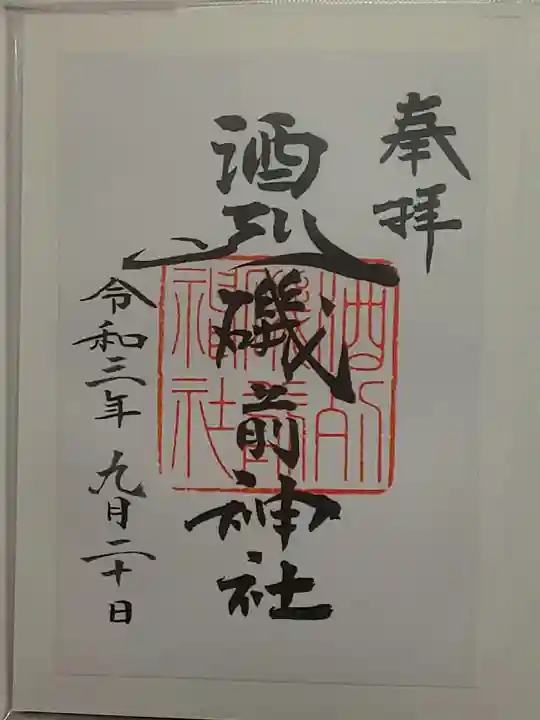 奉拝
酒列磯前神社
令和三年 九月二十日
酒列
磯前
神社